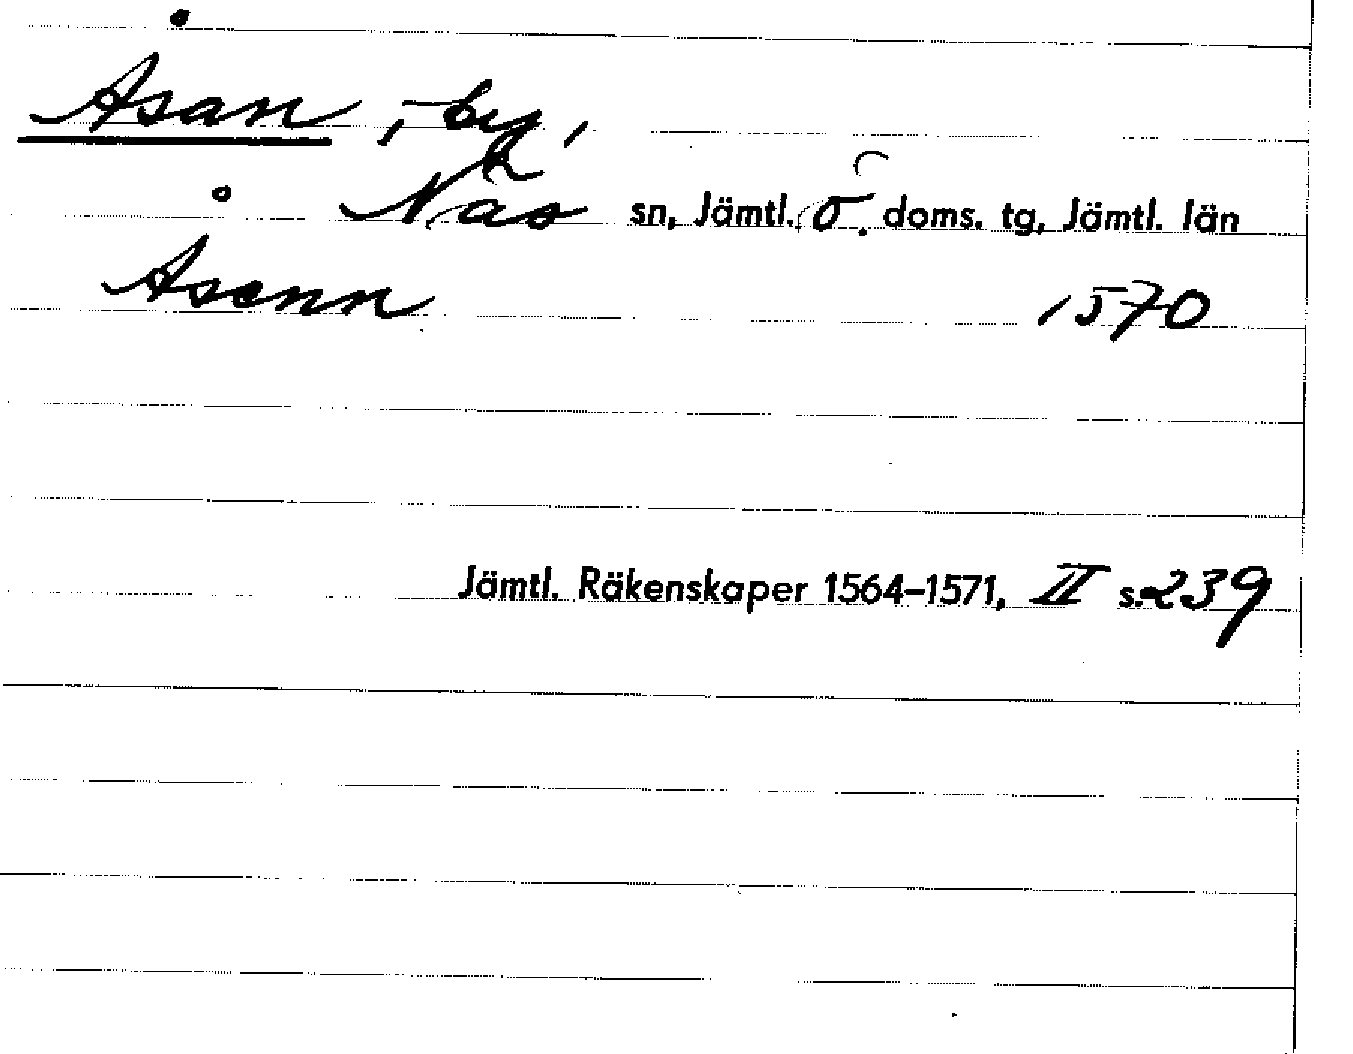 Åsan, -by,
Näs sn, Jämtl. ö. doms. tg, Jämtl. län
Åsenn 1570
Jämtl. Räkenskaper 1564–1571, II s. 239